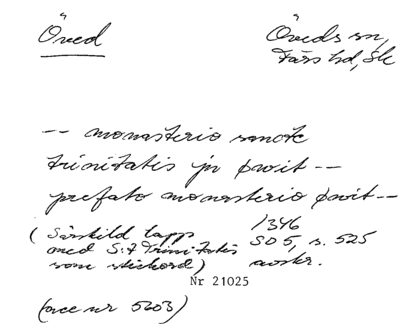 Öved
Öveds sn,
Färs hd, Sk
-- monasterio sancte
trinitatis jn øwit --
prefato monasterio øwit --
(Särskild lapp
med S:t Trinitatis
som stickord)
1346
SD 5, s. 525
avskr.
Nr 21025
(acc nr 5603)